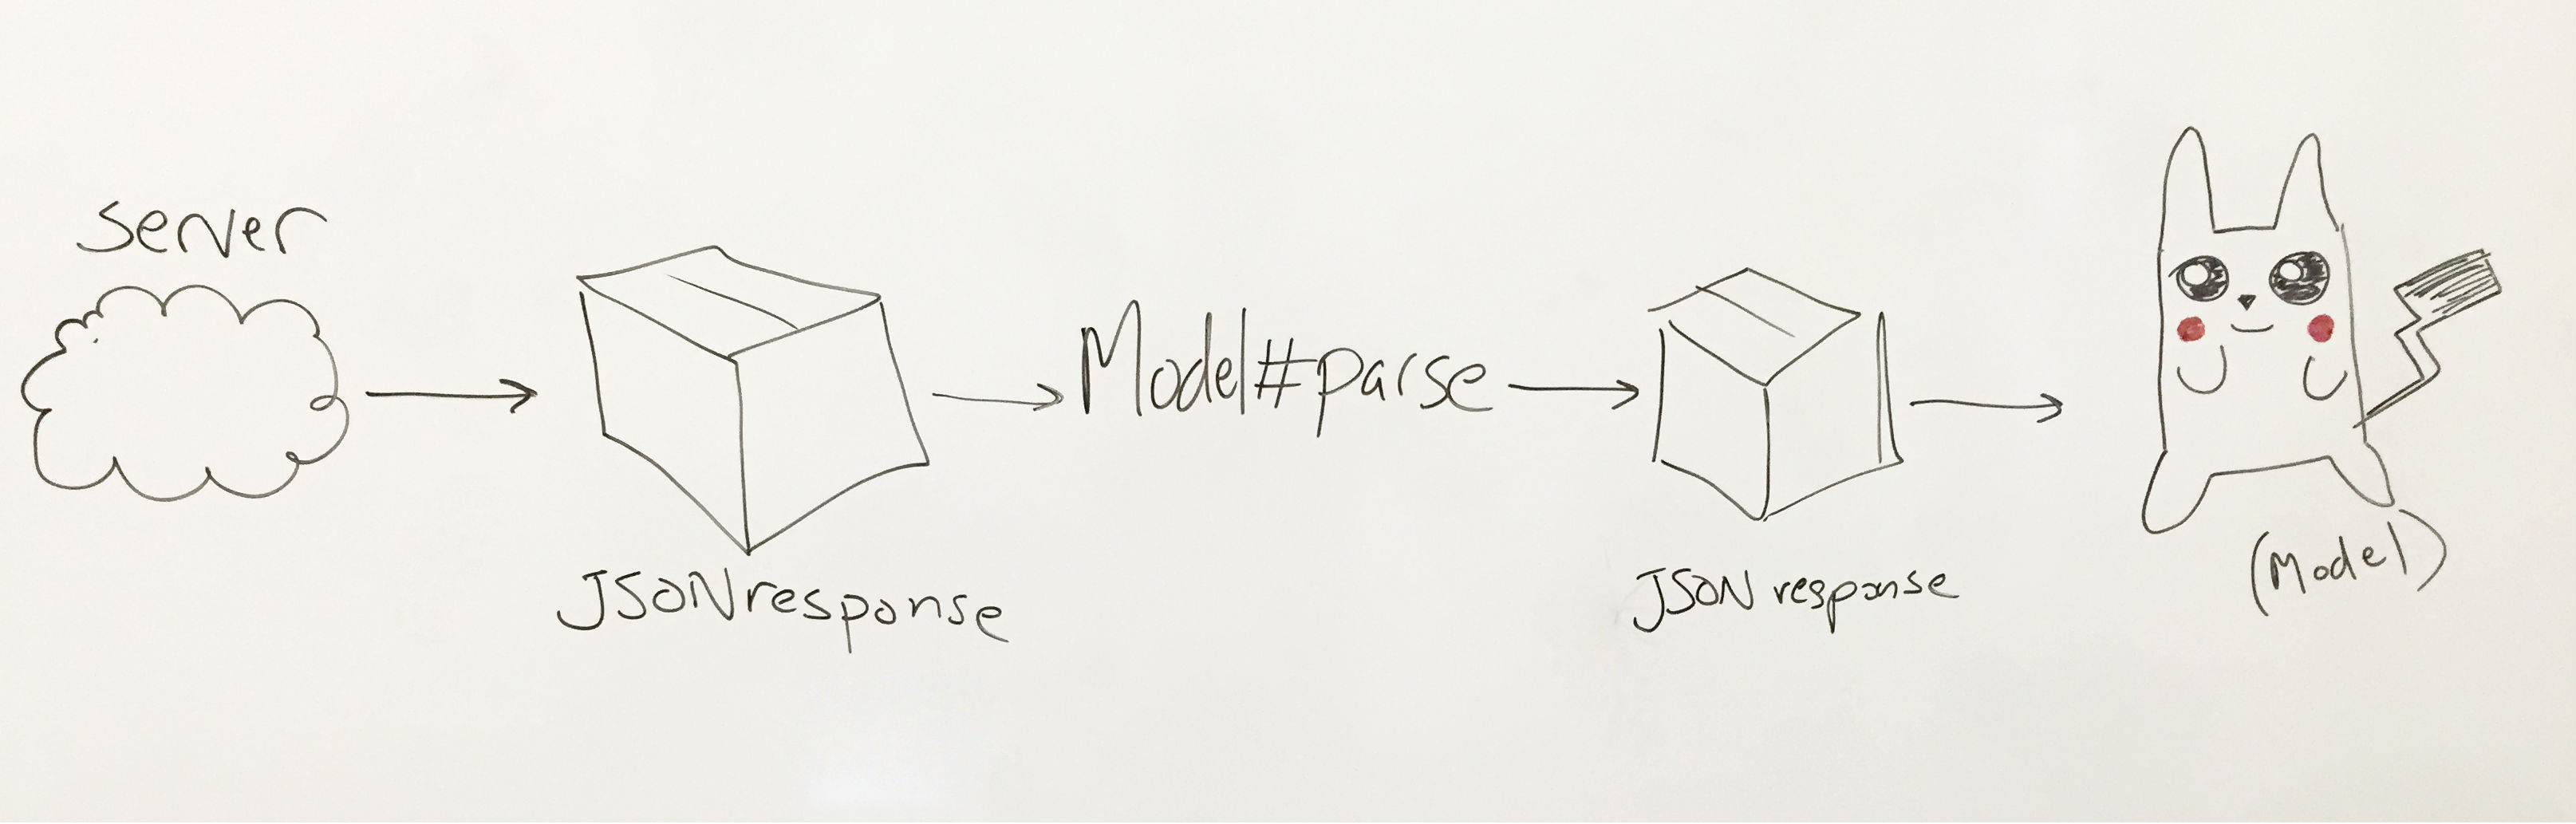 server
JSON response
Model#parse
JSON response
(Model)